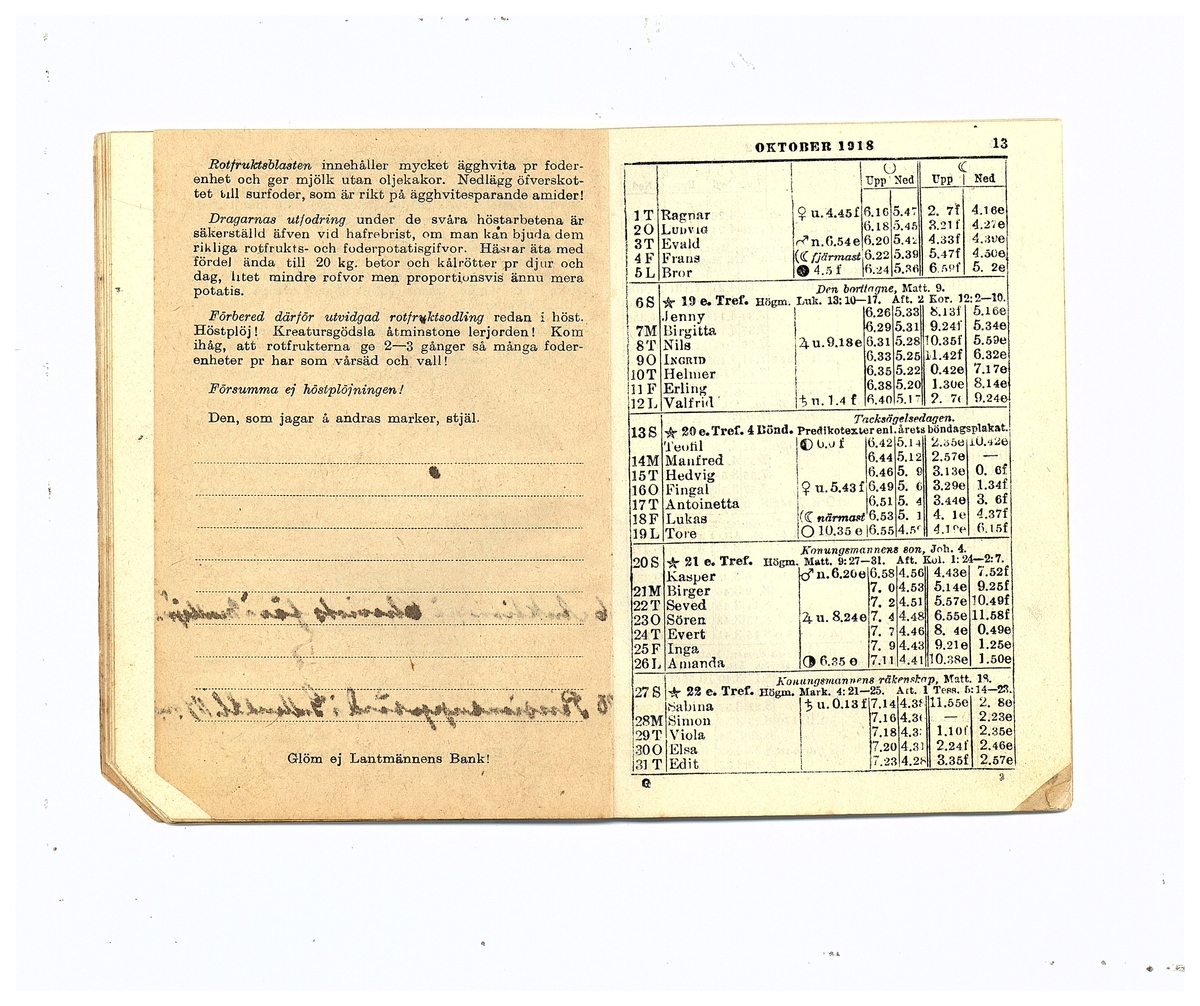 Rotfruktsblasten innehåller mycket ägghvita pr foder-
enhet och ger mjölk utan oljekakor. Nedlägg öfverskot-
tet till surfoder, som är rikt på ägghvitesparande amider!
Dragarnas utfodring under de svåra höstarbetena är
säkerställd äfven vid hafrebrist, om man kan bjuda dem
rikliga rotfrukts- och foderpotatisgifvor. Hästar äta med
fördel ända till 20 kg. betor och kålrötter pr djur och
dag, litet mindre rofvor men proportionsvis ännu mera
potatis.
Förbered därför utvidgad rotfruktsodling redan i höst.
Höstplöj! Kreatursgödsla åtminstone lerjorden! Kom
ihåg, att rotfrukterna ge 2—3 gånger så många foder-
enheter pr har som vårsäd och vall!
Försumma ej höstplöjningen!
Den, som jagar å andras marker, stjäl.
Glöm ej Lantmännens Bank!
OKTOBER 1918 13
Upp Ned Upp Ned
1 T Ragnar ♀ u. 4.45 f 6.16 5.47 2. 7f 4.16e
2 O Ludvig 6.18 5.45 3.21f 4.27e
3 T Evald ♂ n. 6.54e 6.20 5.42 4.33f 4.39e
4 F Frans ☾ fjärmast 6.22 5.39 5.47f 4.50e
5 L Bror ● 4.5 f 6.24 5.36 6.59f 5. 2e
Den borttagne, Matt. 9.
6 S ★ 19 e. Tref. Högm. Luk. 13: 10—17. Aft. 2 Kor. 12: 2—10.
Jenny 6.26 5.33 8.13f 5.16e
7 M Birgitta 6.29 5.31 9.24f 5.34e
8 T Nils ♃ u. 9.18e 6.31 5.28 10.35f 5.59e
9 O INGRID 6.33 5.25 11.42f 6.32e
10 T Helmer 6.35 5.22 0.42e 7.17e
11 F Erling 6.38 5.20 1.30e 8.14e
12 L Valfrid ♄ n. 1.4 f 6.40 5.17 2. 9.24e
Tacksägelsedagen.
13 S ★ 20 e. Tref. 4 Bönd. Predikotexter enl. årets böndagsplakat.
Teofil ◐ 6.0 f 6.42 5.14 2.35e 10.42e
14 M Manfred 6.44 5.12 2.57e —
15 T Hedvig 6.46 5. 9 3.13e 0. 6f
16 O Fingal ♀ u. 5.43 f 6.49 5. 6 3.29e 1.34f
17 T Antoinetta 6.51 5. 4 3.44e 3. 6f
18 F Lukas ☾ närmast 6.53 5. 1 4. 1e 4.37f
19 L Tore ○ 10.35 e 6.55 6.15f
Konungsmannens son, Joh. 4.
20 S ★ 21 e. Tref. Högm. Matt. 9: 27—31. Aft. Kol. 1: 24—2: 7.
Kasper ♂ n. 6.20e 6.58 4.56 4.43e 7.52f
21 M Birger 7. 0 4.53 5.14e 9.25f
22 T Seved 7. 2 4.51 5.57e 10.49f
23 O Sören ♃ u. 8.24e 7. 4 4.48 6.55e 11.58f
24 T Evert 7. 7 4.46 8. 4e 0.49e
25 F Inga 7. 9 4.43 9.21e 1.25e
26 L Amanda ◑ 6.35 e 7.11 4.41 10.38e 1.50e
Konungsmannens räkenskap, Matt. 18.
27 S ★ 22 e. Tref. Högm. Mark. 4: 21—25. Aft. 1 Tess. 5: 14—23.
Sabina ♄ u. 0.13 f 7.14 4.38 11.55e 2. 8e
28 M Simon 7.16 — 2.23e
29 T Viola 7.18 1.10f 2.35e
30 O Elsa 7.20 4.31 2.24f 2.46e
31 T Edit 7.23 4.28 3.35f 2.57e